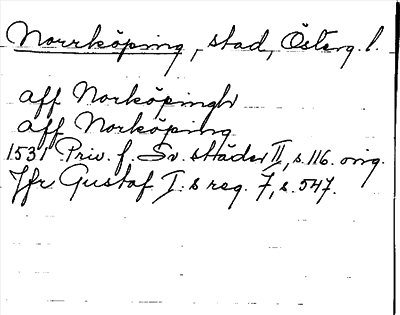 Norrköping, stad, Österg. l.
aff Norköpingh
aff Norköping
1531 Priv. f. Sv. städer II, s. 116. orig.
Jfr Gustaf I:s reg. 7, s. 547.